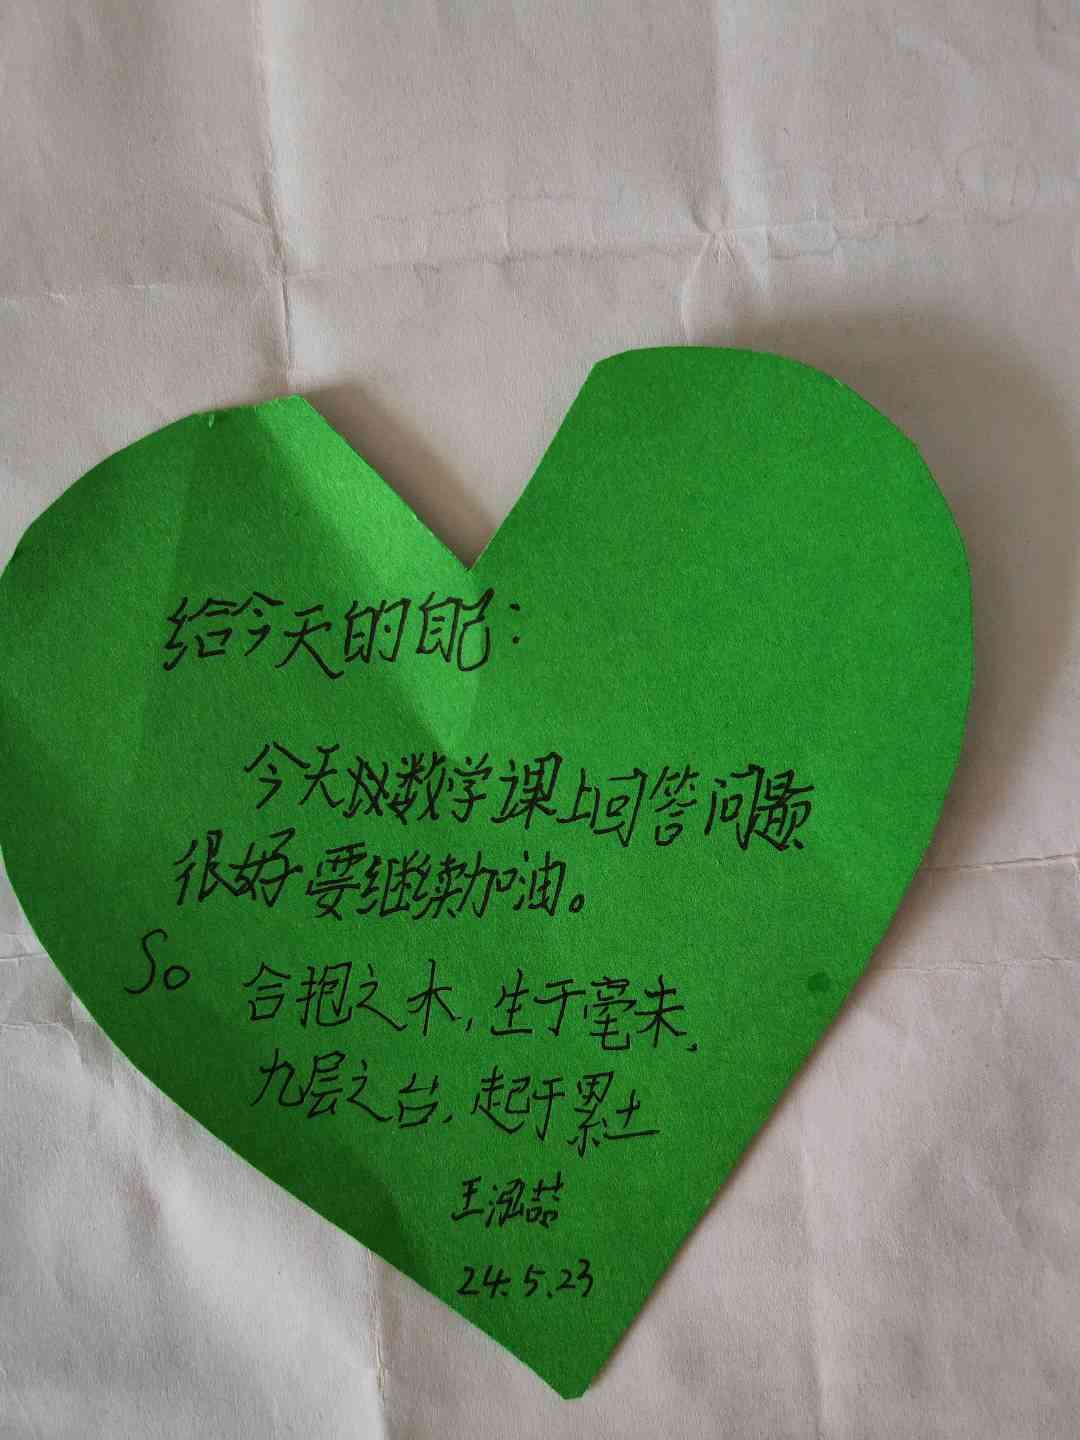 给今天的自己：
今天数学课上回答问题
很好要继续加油。
So 合抱之木，生于毫末，
九层之台，起于累土
王泓喆
24.5.23